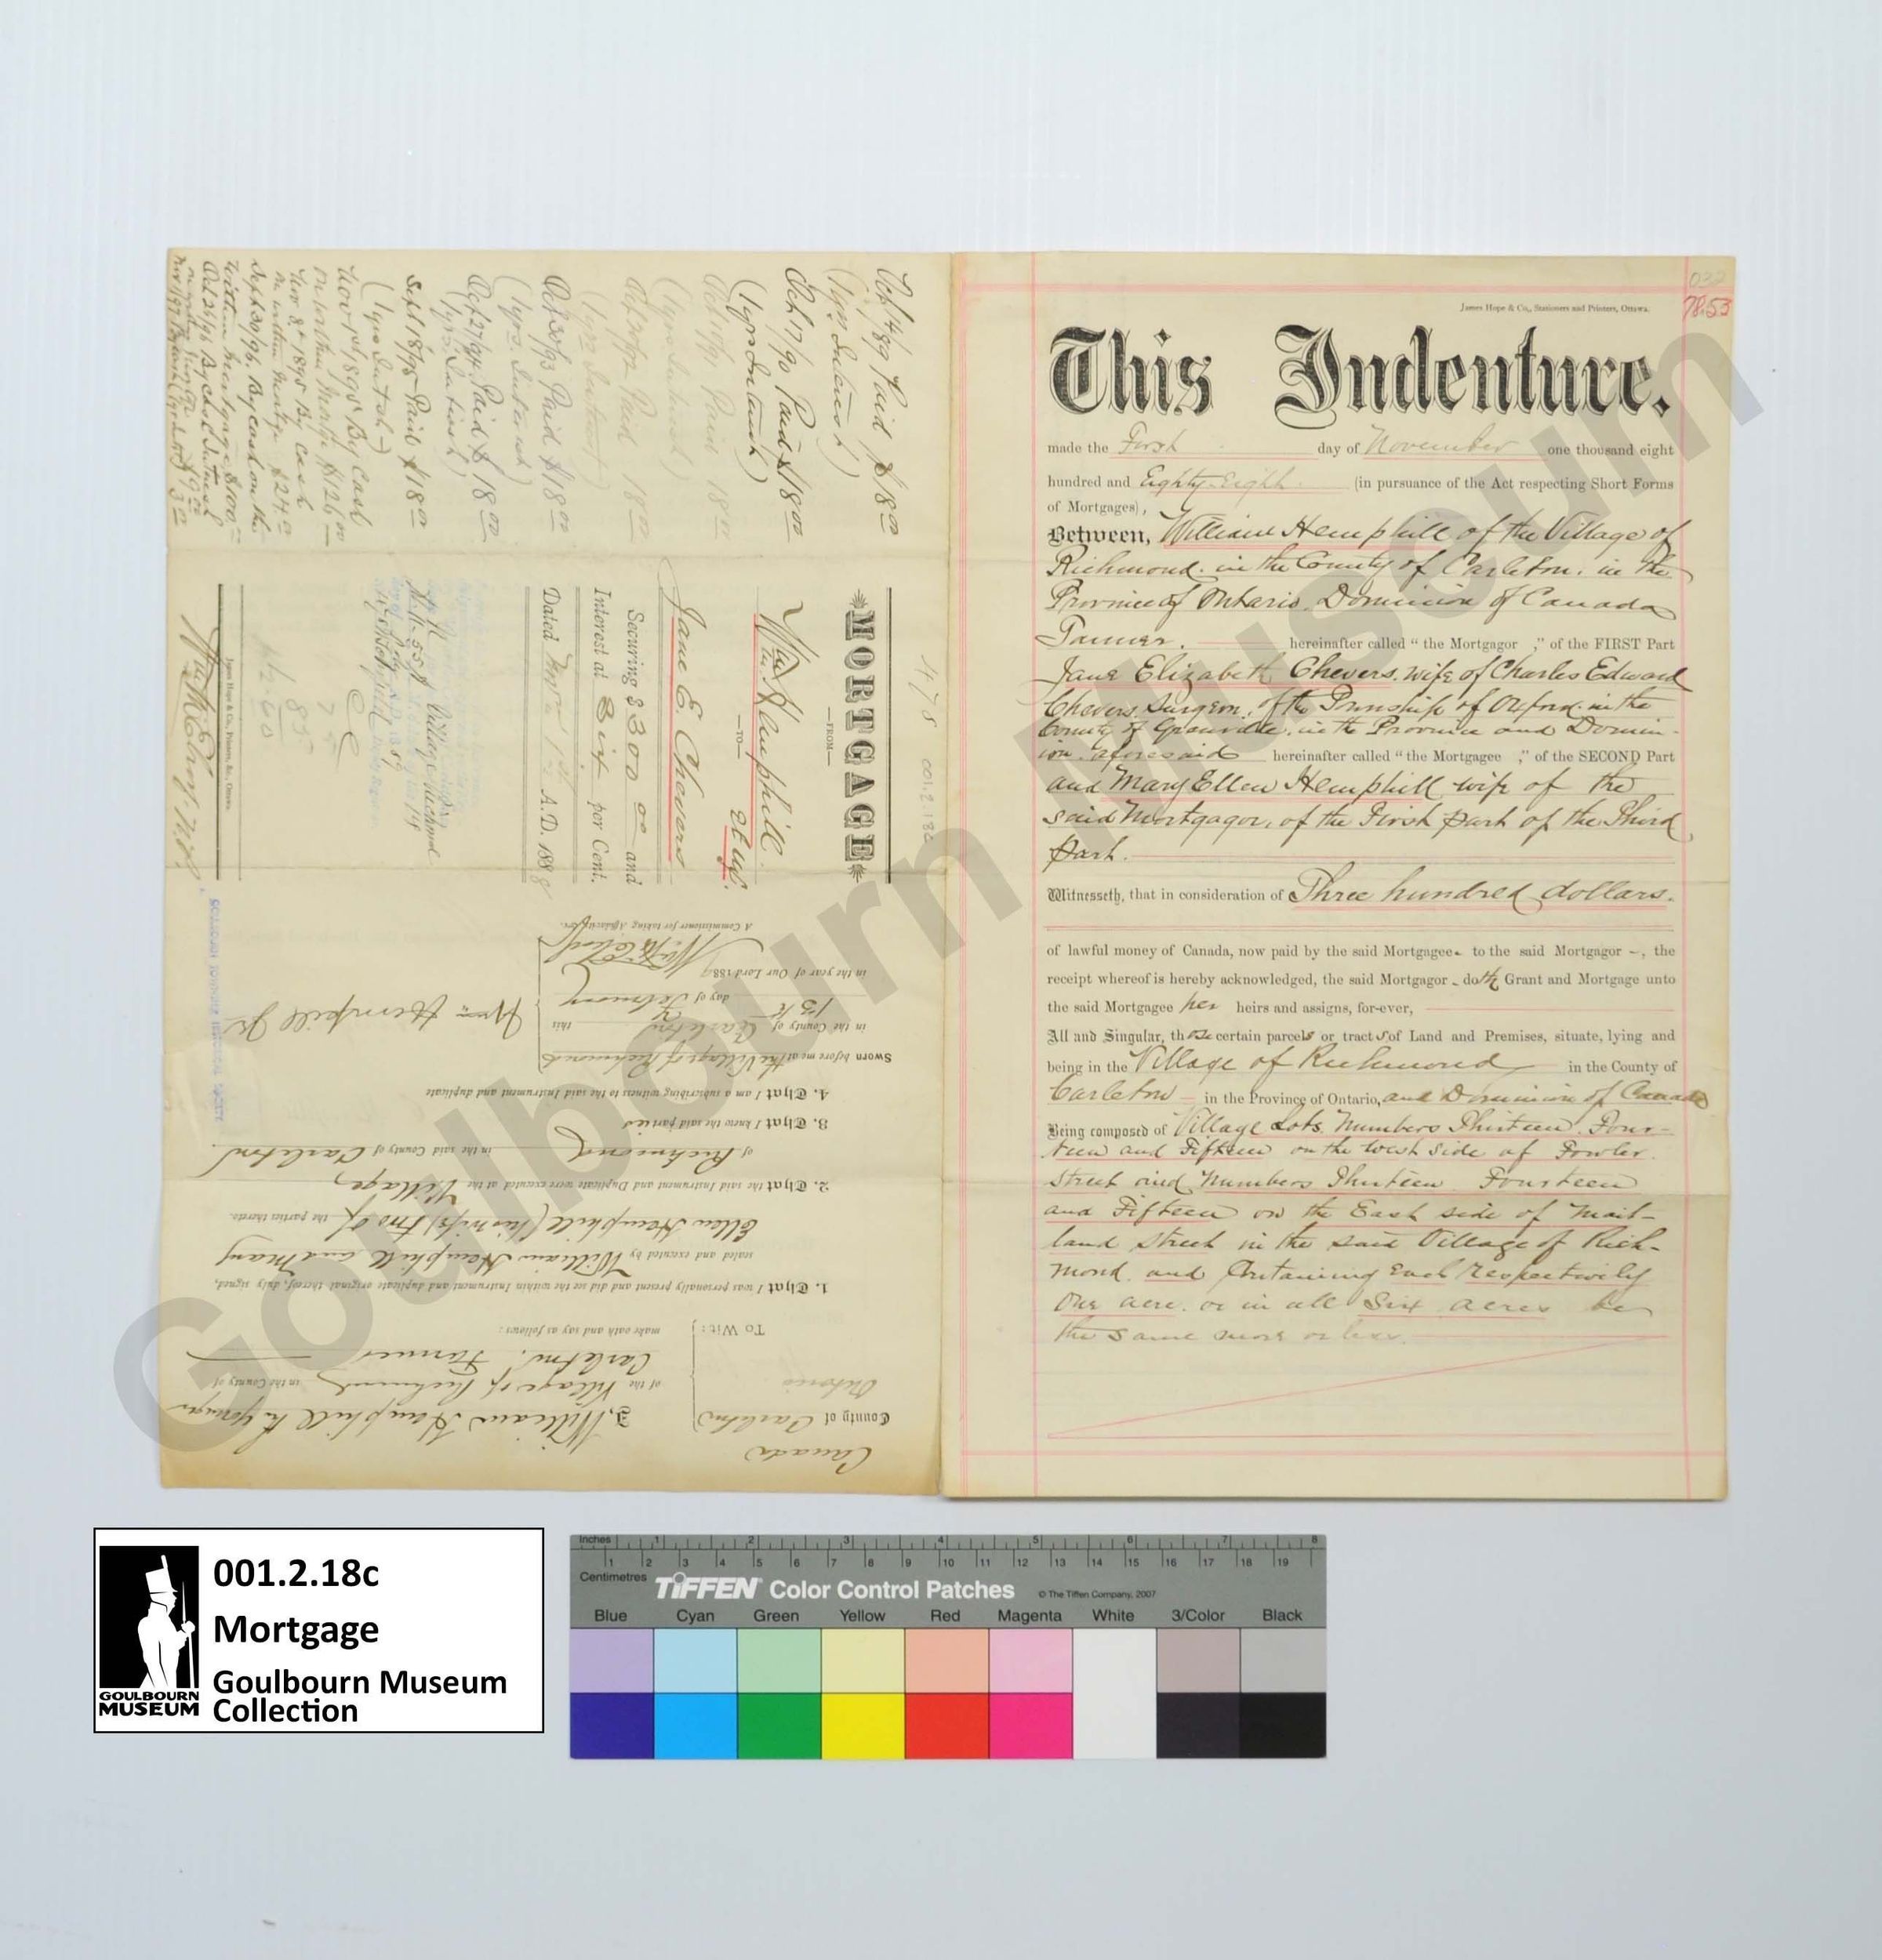 032
78.53
James Hope & Co., Stationers and Printers, Ottawa.
This Indenture.
made the First day of November one thousand eight
hundred and Eighty-Eight (in pursuance of the Act respecting Short Forms
of Mortgages),
Between, William Hemphill of the Village of
Richmond. in the County of Carleton. in the
Province of Ontario. Dominion of Canada
hereinafter called "the Mortgagor ," of the FIRST Part
Jane Elizabeth Chevers. wife of Charles Edward
Chevers, Surgeon, of the Township of Oxford. in the
County of Grenville. in the Province and Domin-
ion. aforesaid hereinafter called "the Mortgagee ," of the SECOND Part
and Mary Ellen Hemphill wife of the
said Mortgagor, of the First part of the Third
part.
Witnesseth, that in consideration of Three hundred dollars.
of lawful money of Canada, now paid by the said Mortgagee - to the said Mortgagor -, the
receipt whereof is hereby acknowledged, the said Mortgagor - doth Grant and Mortgage unto
the said Mortgagee her heirs and assigns, for-ever,
All and Singular, those certain parcels or tracts of Land and Premises, situate, lying and
being in the Village of Richmond in the County of
Carleton in the Province of Ontario, and Dominion of Canada
Being composed of Village Lots. Numbers Thirteen. Four-
teen and Fifteen on the West side of Fowler.
Street and Numbers Thirteen Fourteen
and Fifteen on the East side of Mait-
land Street in the said Village of Rich-
mond. and Containing Each Respectively
One acre. or in all Six acres be
the same more or less.
478 001.2.18c
MORTGAGE
—FROM—
Wm. Hemphill.
et ux.
—TO—
Jane E. Chevers
Securing $ 300 00 and
Interest at Six per Cent.
Dated Nov. 1st A.D. 1888
James Hope & Co., Printers, &c., Ottawa.
Oct 4/89 Paid $18 00
(1 yrs Interest)
Oct 17/90 Paid $18 00
(1 yrs Interest)
Paid 18 00
(1 yrs Interest)
Paid 18 00
(1 yrs Interest)
Oct 30/93 Paid $18 00
(1 yrs. Interest)
Oct 27/94 Paid $18 00
(1 yrs. Interest)
Sept 18/95 Paid $18 00
(1 yrs Interest)
Nov 1st, 1895 By Cash
on within Mortge $126 00
Nov 8th 1895 By Cash
on within Mortge $24 00
Sept 30/96. By cash on the
within mortgage $100 00
Canada
County of Carleton
Ontario
To Wit:
I, William Hemphill the younger
of the Village of Richmond in the County of
Carleton. Farmer
make oath and say as follows:
1. That I was personally present and did see the within Instrument and duplicate original thereof, duly signed,
sealed and executed by William Hemphill and Mary
Ellen Hemphill (his wife) two of the parties thereto.
2. That the said Instrument and Duplicate were executed at the Village
of Richmond in the said County of Carleton.
3. That I know the said parties
4. That I am a subscribing witness to the said Instrument and duplicate
Sworn before me at the Village of Richmond
in the County of Carleton this
15th day of February
in the year of Our Lord 188
Wm Hemphill Jr
A Commissioner for taking Affidavits
GOULBOURN TOWNSHIP HISTORICAL SOCIETY
Goulbourn Museum
GOULBOURN
MUSEUM
001.2.18c
Mortgage
Goulbourn Museum
Collection
Inches 1 2 3 4 5 6 7 8
1 2 3 4 5 6 7 8 9 10 11 12 13 14 15 16 17 18 19
Centimetres
TIFFEN Color Control Patches © The Tiffen Company, 2007
Blue Cyan Green Yellow Red Magenta White 3/Color Black